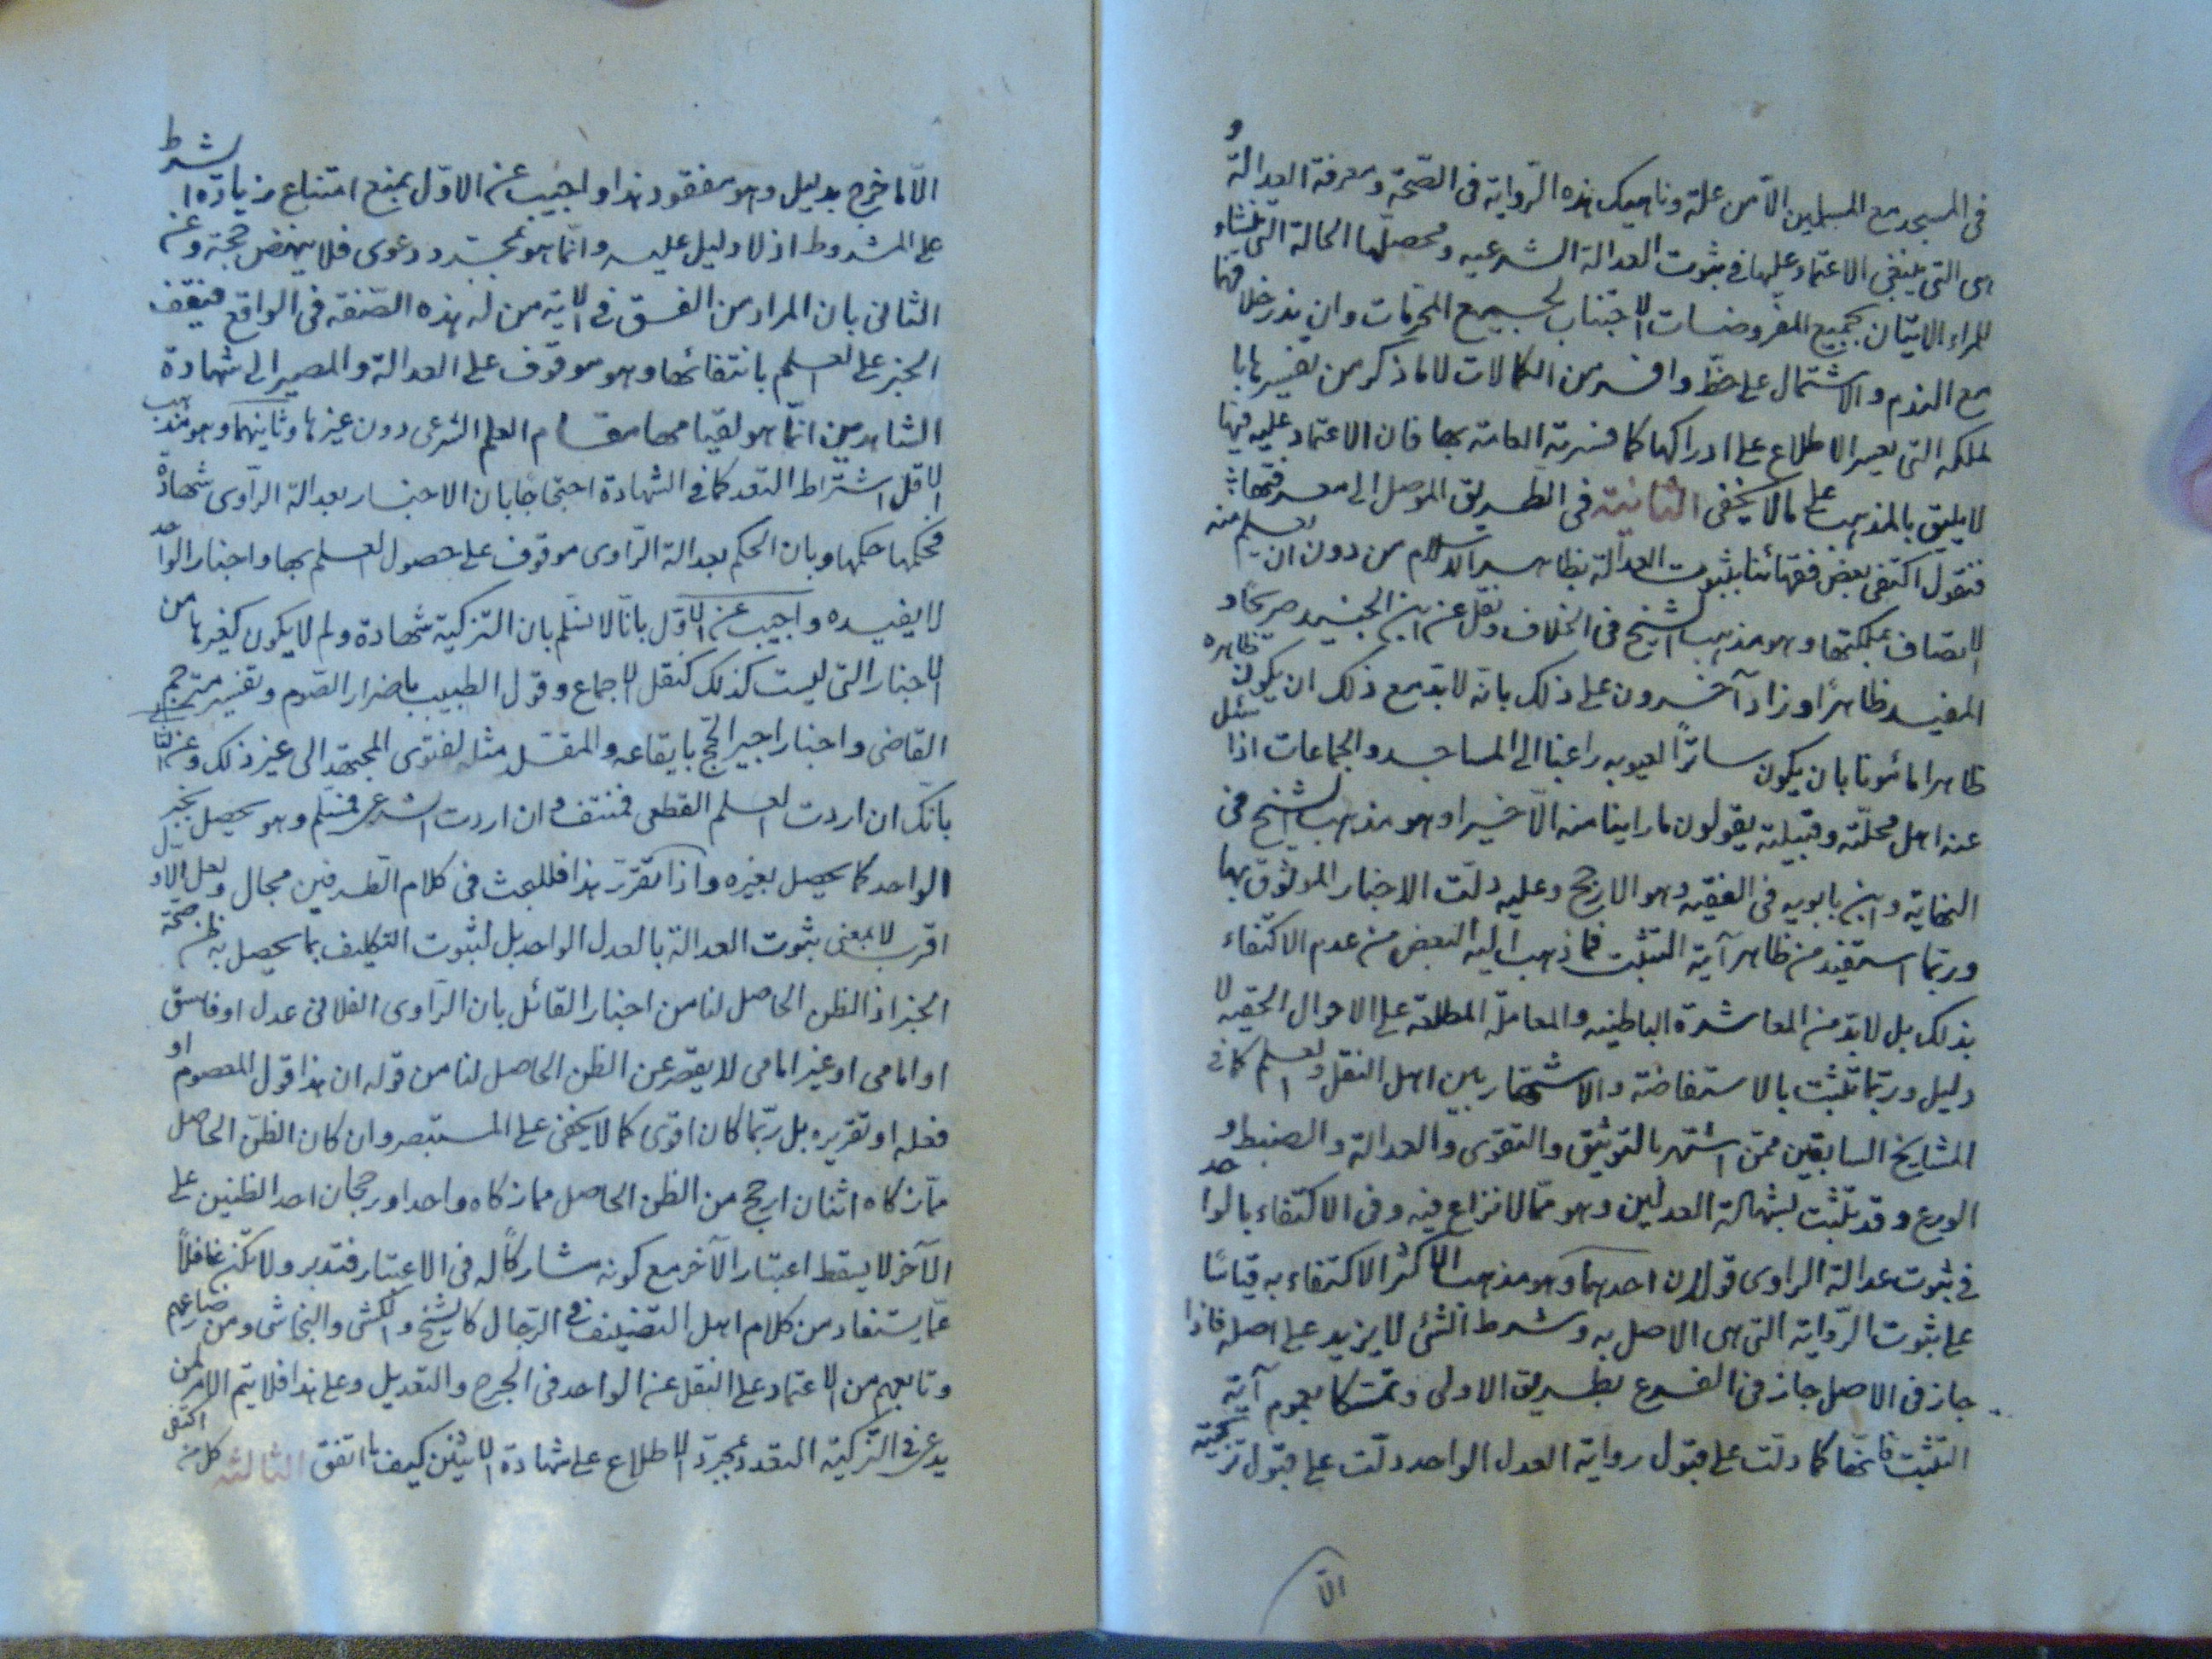 فى المسجد مع المسلمين الا من علة وناهيك بهذه الرواية فى الصحة ومعرفة العدالة و
هى التى ينبغى الاعتماد عليها فى ثبوت العدالة الشرعيه ومحصلها الحالة التى
للمراء الاتيان بجميع المفروضات الاجتناب لجميع المحرمات وان بدر خلافها
مع الندم والاشتمال على حظ وافر من الكمالات لا ما ذكر من تفسيرها با
لملكه التى يعسر الاطلاع على ادراكها كما فسرته العامة بها فان الاعتماد عليه فيها
لا يليق بالمذهب على ما لا يخفى الثانية فى الطريق الموصل الى معرفتها
فنقول اكتفى بعض فقهائنا بثبوت العدالة بظاهر الاسلام من دون ان يعلم منه
الاتصاف بملكتها وهو مذهب الشيخ فى الخلاف ونقل عن ابن الجنيد صريحا و
المفيد ظاهرا وزاد آخرون على ذلك بانه لا بد مع ذلك ان يكون ظاهره
ظاهرا مأمونا بان يكون ساترا لعيوبه راغبا الى المساجد والجماعات اذا سئل
عنه اهل محلته وقبيلته يقولون ما راينا منه الا خيرا وهو مذهب الشيخ فى
النهاية وابن بابويه فى الفقيه وهو الارجح وعليه دلت الاخبار الموثوق بها
وربما استفيد من ظاهر آية التثبت فما ذهب اليه البعض من عدم الاكتفاء
بذلك بل لا بد من المعاشرة الباطنيه والمعاملة المطلعة على الاحوال الخفيه لا
دليل وربما تثبت بالاستفاضة والاشتهار بين اهل النقل والعلم كما فى
المشايخ السابقين ممن اشتهر بالتوثيق والتقوى والعدالة والضبط و
الورع وقد تثبت بشهادة العدلين وهو مما لا نزاع فيه وفى الاكتفاء بالواحد
فى ثبوت عدالة الراوى قولان احدهما وهو مذهب الاكثر الاكتفاء به قياسا
على ثبوت الرواية التى هى الاصل به وشرط الشئ لا يزيد على اصله فاذا
جاز فى الاصل جاز فى الفرع بطريق الاولى وتمسكا بعموم آية
التثبت فانها كما دلت على قبول رواية العدل الواحد دلت على قبول تزكيته
الا
الا ما خرج بدليل وهو مفقود هذا واجيب عن الاول بمنع امتناع زيادة الشرط
على المشروط اذ لا دليل عليه وانما هو مجرد دعوى فلا ينهض حجة وعن
الثانى بان المراد من الفسق فى الاية من له هذه الصفة فى الواقع فيتوقف
الخبر على العلم بانتفائها وهو موقوف على العدالة والمصير الى شهادة
الشاهدين انما هو لقيامها مقام العلم الشرعى دون غيرها وثانيهما وهو مذهب
الاقل اشتراط التعدد كما فى الشهادة احتجاجا بان الاخبار بعدالة الراوى شهادة
فحكمها حكمها وبان الحكم بعدالة الراوى موقوف على حصول العلم بها واخبار الواحد
لا يفيده واجيب عن الاول بانا لا نسلم بان التزكية شهادة ولم لا يكون كغيرها من
الاخبار التى ليست كذلك كنقل الاجماع وقول الطبيب باضرار الصوم وتفسير مترجم
القاضى واخبار اجير الحج بايقاعه والمقلد مثله لفتوى المجتهد الى غير ذلك وعن الثانى
بانك ان اردت العلم القطعى فمنتف وان اردت الشرعى فمسلم وهو يحصل بخبر
الواحد كما يحصل بغيره واذا تقرر هذا فللبحث فى كلام الطرفين مجال ولعل الاول
اقرب لا بمعنى ثبوت العدالة بالعدل الواحد بل لثبوت التكليف بما يحصل به ظن صحة
الخبر اذ الظن الحاصل لنا من اخبار القائل بان الراوى الفلانى عدل او فاسق
او امامى او غير امامى لا يقصر عن الظن الحاصل لنا من قوله ان هذا قول المعصوم او
فعله او تقريره بل ربما كان اقوى كما لا يخفى على المستبصر وان كان الظن الحاصل
مما زكاه اثنان ارجح من الظن الحاصل مما زكاه واحد اورجحان احد الظنين على
الآخر لا يسقط اعتبار الآخر مع كونه مشاركا له فى الاعتبار فتدبر ولا تكن غافلا
عما يستفاد من كلام اهل التصنيف فى الرجال كالشيخ والكشى والنجاشى ومن ضاهاهم
وتابعهم من الاعتماد على النقل عن الواحد فى الجرح والتعديل وعلى هذا فلا يتم الامر لمن
يدعى فى التزكية التعدد بمجرد الاطلاع على شهادة الاثنين كيف ما اتفق الثالثة كل من اكتفى